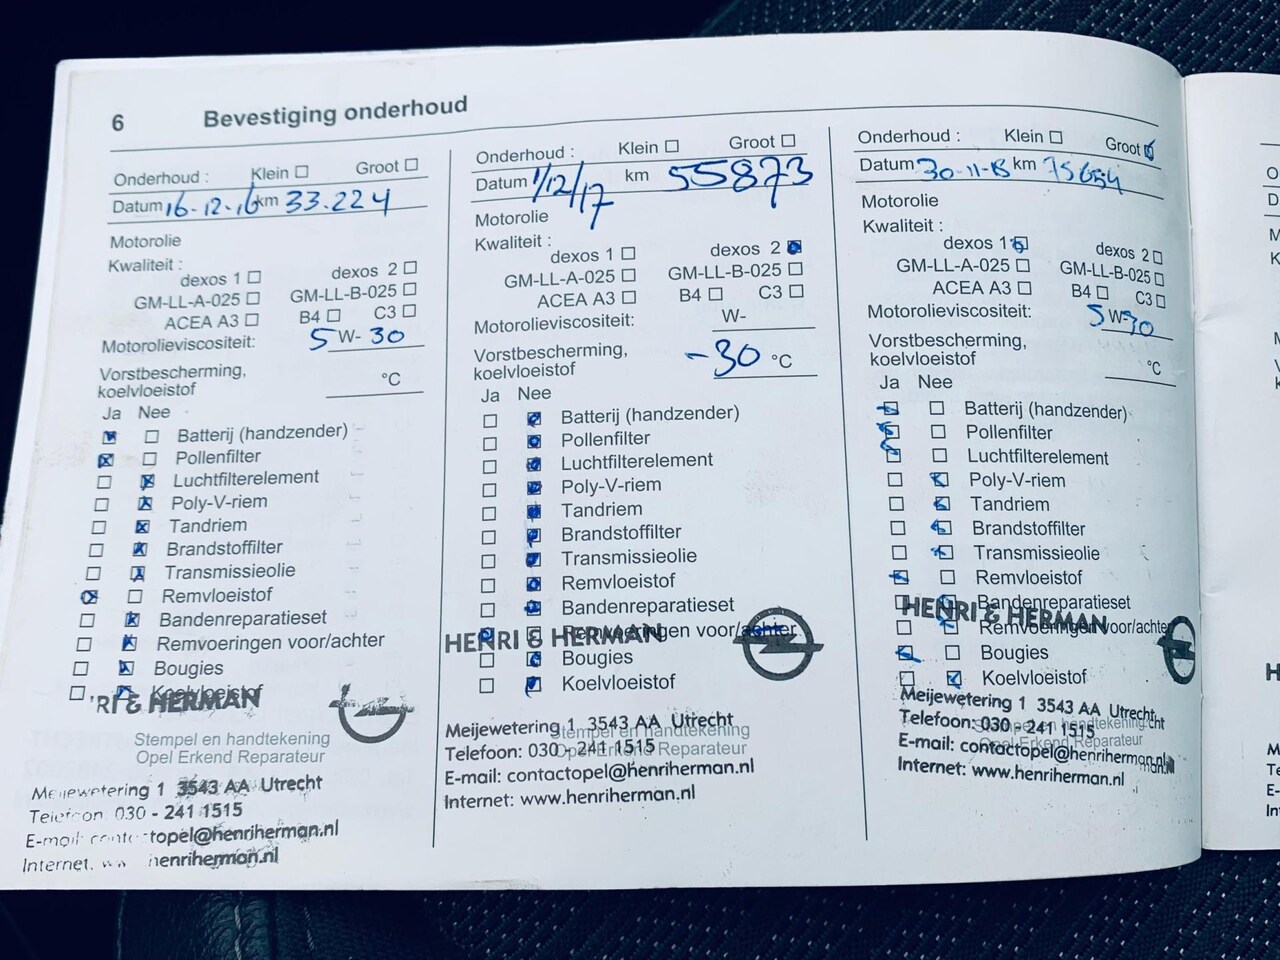 6 Bevestiging onderhoud
Onderhoud : Klein Groot
Datum 16-12-16 km 33.224
Motorolie
Kwaliteit :
dexos 1 dexos 2
GM-LL-A-025 GM-LL-B-025
ACEA A3 B4 C3
Motorolieviscositeit: 5 W- 30
Vorstbescherming,
koelvloeistof °C
Ja Nee
Batterij (handzender)
Pollenfilter
Luchtfilterelement
Poly-V-riem
Tandriem
Brandstoffilter
Transmissieolie
Remvloeistof
Bandenreparatieset
Remvoeringen voor/achter
Bougies
Koelvloeistof
'RI & HERMAN
Stempel en handtekening
Opel Erkend Reparateur
Meijewetering 1 3543 AA Utrecht
Telefoon: 030 - 241 1515
E-mail: contactopel@henriherman.nl
Internet. henriherman.nl
Onderhoud : Klein Groot
Datum 1/12/17 km 55873
Motorolie
Kwaliteit :
dexos 1 dexos 2
GM-LL-A-025 GM-LL-B-025
ACEA A3 B4 C3
Motorolieviscositeit: W-
Vorstbescherming,
koelvloeistof -30 °C
Ja Nee
Batterij (handzender)
Pollenfilter
Luchtfilterelement
Poly-V-riem
Tandriem
Brandstoffilter
Transmissieolie
Remvloeistof
Bandenreparatieset
Remvoeringen voor/achter
HENRI & HERMAN
Bougies
Koelvloeistof
Meijewetering 1 3543 AA Utrecht
Stempel en handtekening
Telefoon: 030 - 241 1515
Opel Erkend Reparateur
E-mail: contactopel@henriherman.nl
Internet: www.henriherman.nl
Onderhoud : Klein Groot
Datum 30-11-18 km 75654
Motorolie
Kwaliteit :
dexos 1 dexos 2
GM-LL-A-025 GM-LL-B-025
ACEA A3 B4 C3
Motorolieviscositeit: 5 W-30
Vorstbescherming,
koelvloeistof °C
Ja Nee
Batterij (handzender)
Pollenfilter
Luchtfilterelement
Poly-V-riem
Tandriem
Brandstoffilter
Transmissieolie
Remvloeistof
Bandenreparatieset
HENRI & HERMAN
Remvoeringen voor/achter
Bougies
Koelvloeistof
Meijewetering 1 3543 AA Utrecht
Stempel en handtekening
Telefoon: 030 - 241 1515
Opel Erkend Reparateur
E-mail: contactopel@henriherman.nl
Internet: www.henriherman.nl